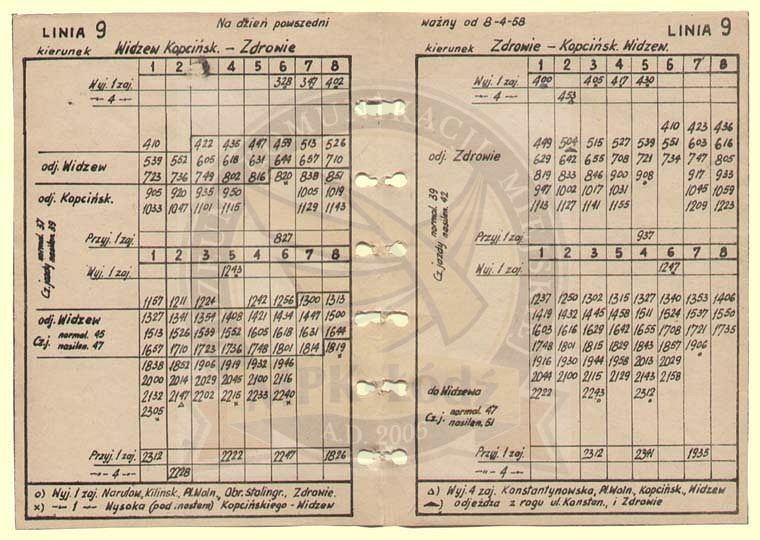 LINIA 9
Na dzień powszedni
kierunek Widzew Kopcińsk. – Zdrowie
1 2 4 5 6 7 8
Wyj. 1 zaj. 328 347 402
—"— 4 —"—
410 422 435 447 459 513 526
odj. Widzew
539 552 605 618 631 644 657 710
723 736 749 802 816 820 838 851
odj. Kopcińsk.
905 920 935 950 1005 1019
1033 1047 1101 1115 1129 1143
Cz. jazdy normal. 37
nasilen. 39
Przyj. 1 zaj. 827
1 2 3 4 5 6 7 8
Wyj. 1 zaj. 1243
1157 1211 1224 1242 1256 1300 1313
odj. Widzew
Cz. j. normal. 45
nasilen. 47
1327 1341 1354 1408 1421 1434 1447 1500
1513 1526 1539 1552 1605 1618 1631 1644
1657 1710 1723 1736 1748 1801 1814 1819
1838 1852 1906 1919 1932 1946
2000 2014 2029 2045 2100 2116
2132 2147 2202 2215 2233 2240
2305
Przyj. 1 zaj. 2312 2222 2247 1826
—"— 4 —"— 2228
o) Wyj. 1 zaj. Narutow, Kilińsk., Pl. Woln., Obr. Stalingr., Zdrowie.
x) —"— 1 —"— Wysoka (pod mostem) Kopcińskiego - Widzew
ważny od 8-4-58
LINIA 9
kierunek Zdrowie – Kopcińsk. Widzew.
1 2 3 4 5 6 7 8
Wyj. 1 zaj. 400 405 417 430
—"— 4 —"— 453
410 423 436
odj. Zdrowie
449 504 515 527 539 551 603 616
629 642 655 708 721 734 747 805
819 833 846 900 908 917 933
947 1002 1017 1031 1045 1059
1113 1127 1141 1155 1209 1223
Cz. jazdy normal. 39
nasilen. 42
Przyj. 1 zaj. 937
1 2 3 4 5 6 7 8
Wyj. 1 zaj. 1247
1237 1250 1302 1315 1327 1340 1353 1406
1419 1432 1445 1458 1511 1524 1537 1550
1603 1616 1629 1642 1655 1708 1721 1735
1748 1801 1815 1829 1843 1857 1906
1916 1930 1944 1958 2013 2029
2044 2100 2115 2129 2143 2158
do Widzewa
2222 2243 2312
Cz. j. normal. 47
nasilen. 51
Przyj. 1 zaj. 2312 2341 1935
—"— 4 —"—
Δ) Wyj. 4 zaj. Konstantynowska, Pl. Woln., Kopcińsk., Widzew
odjeżdża z rogu ul. Konstan., i Zdrowie
A.D. 2006